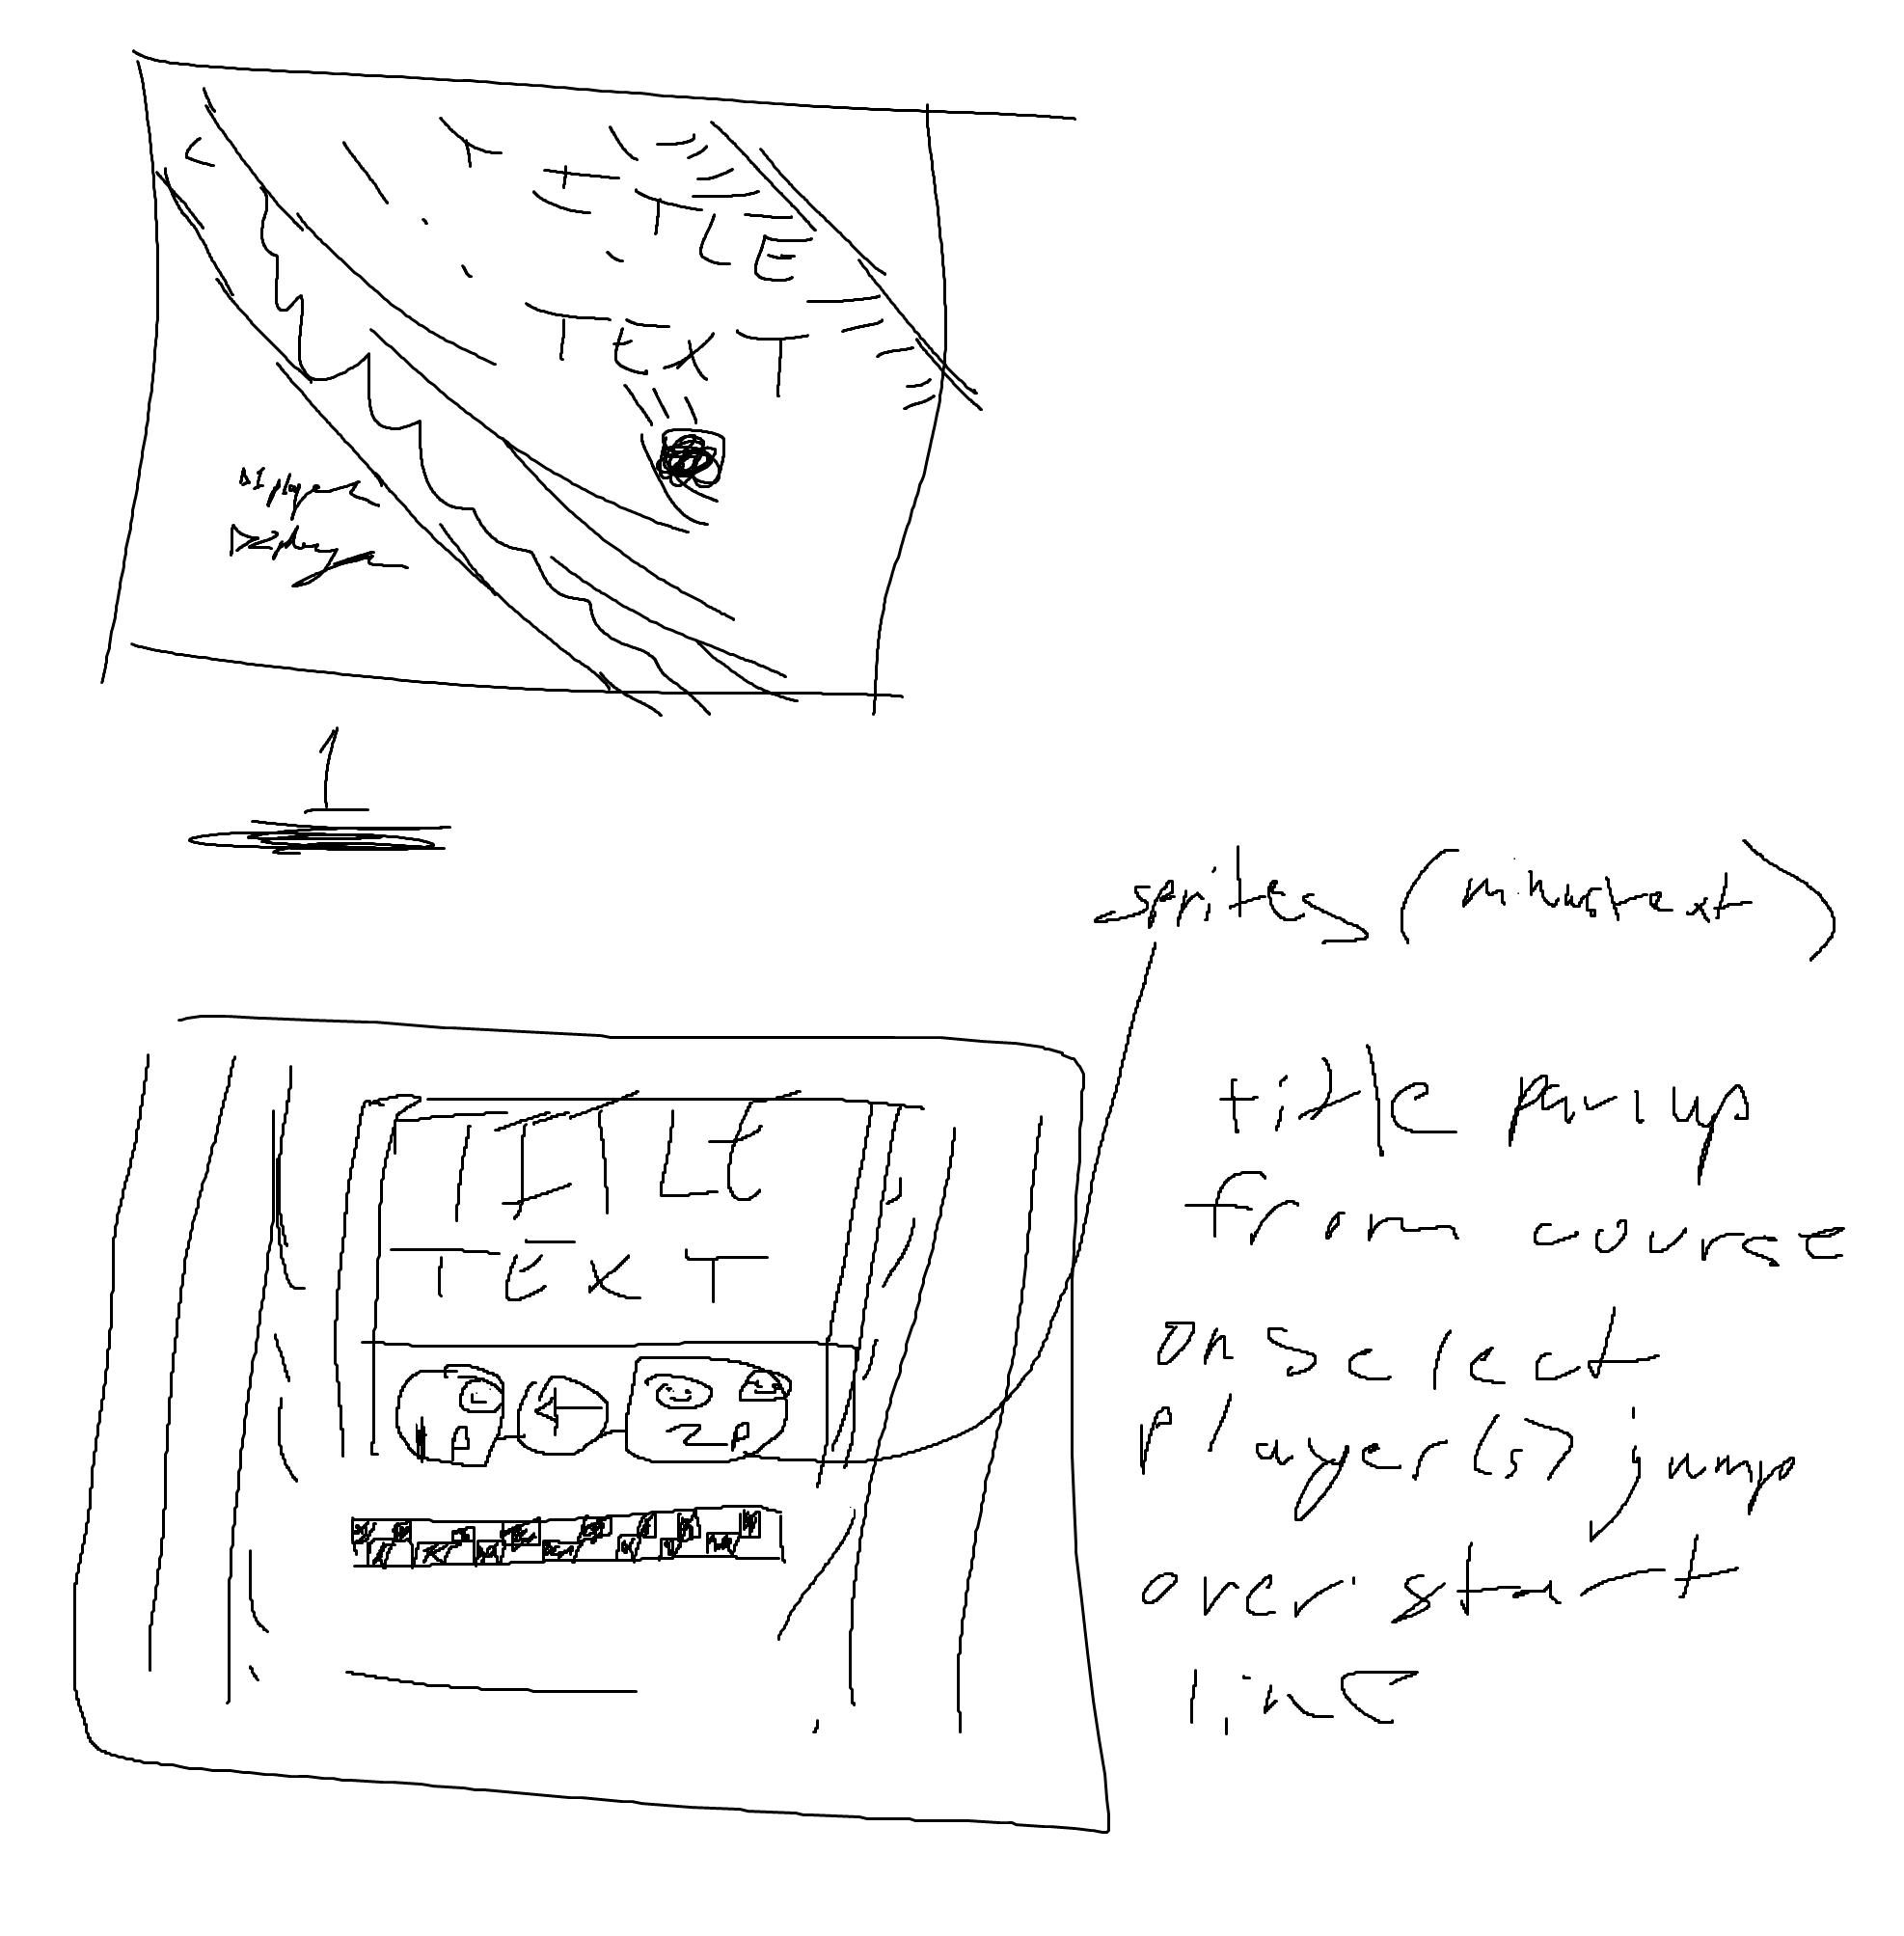 TITLE
TEXT
▷1 player
▷2 player
1
sprites (minus text)
TITLE
TEXT
1P
2P
title pans up
from course
on select
player(s) jump
over start
line